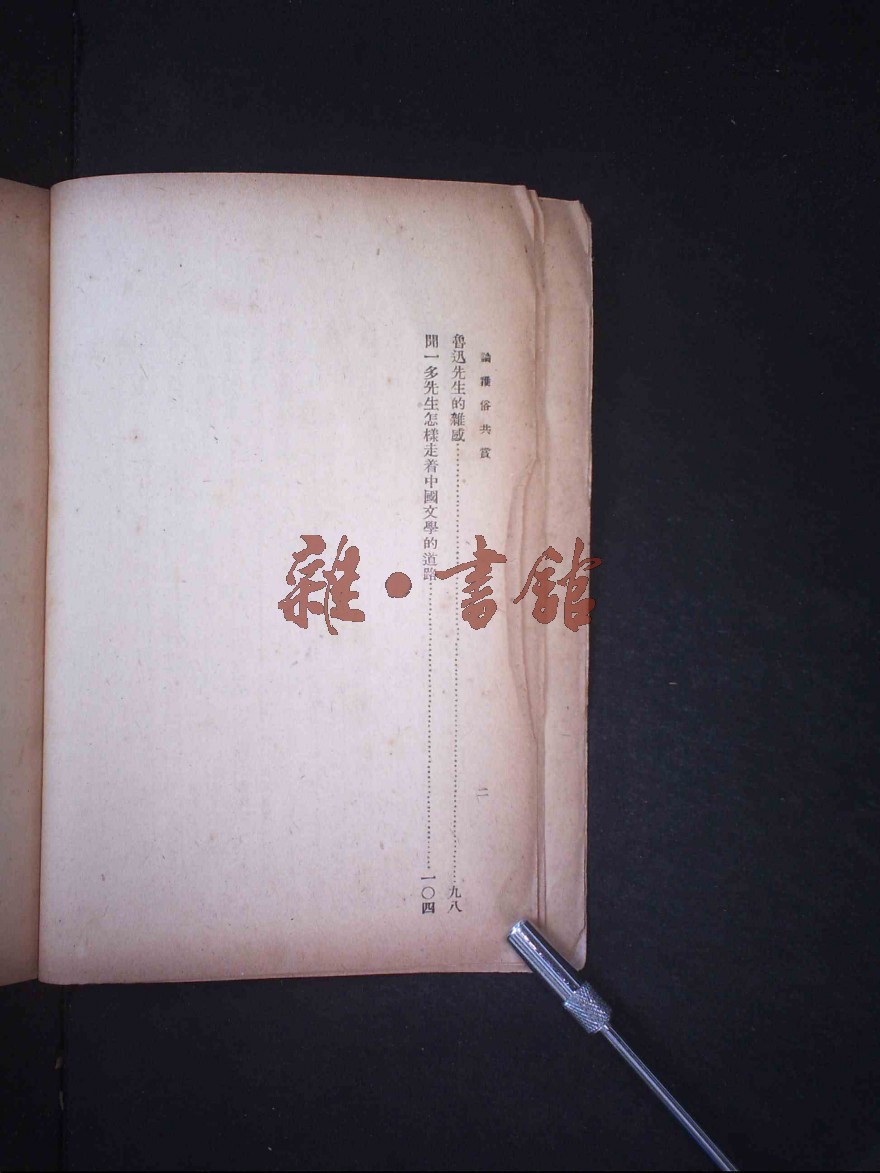 論雅俗共賞
二
魯迅先生的雜感……九八
聞一多先生怎樣走着中國文學的道路……一〇四
雜·書館